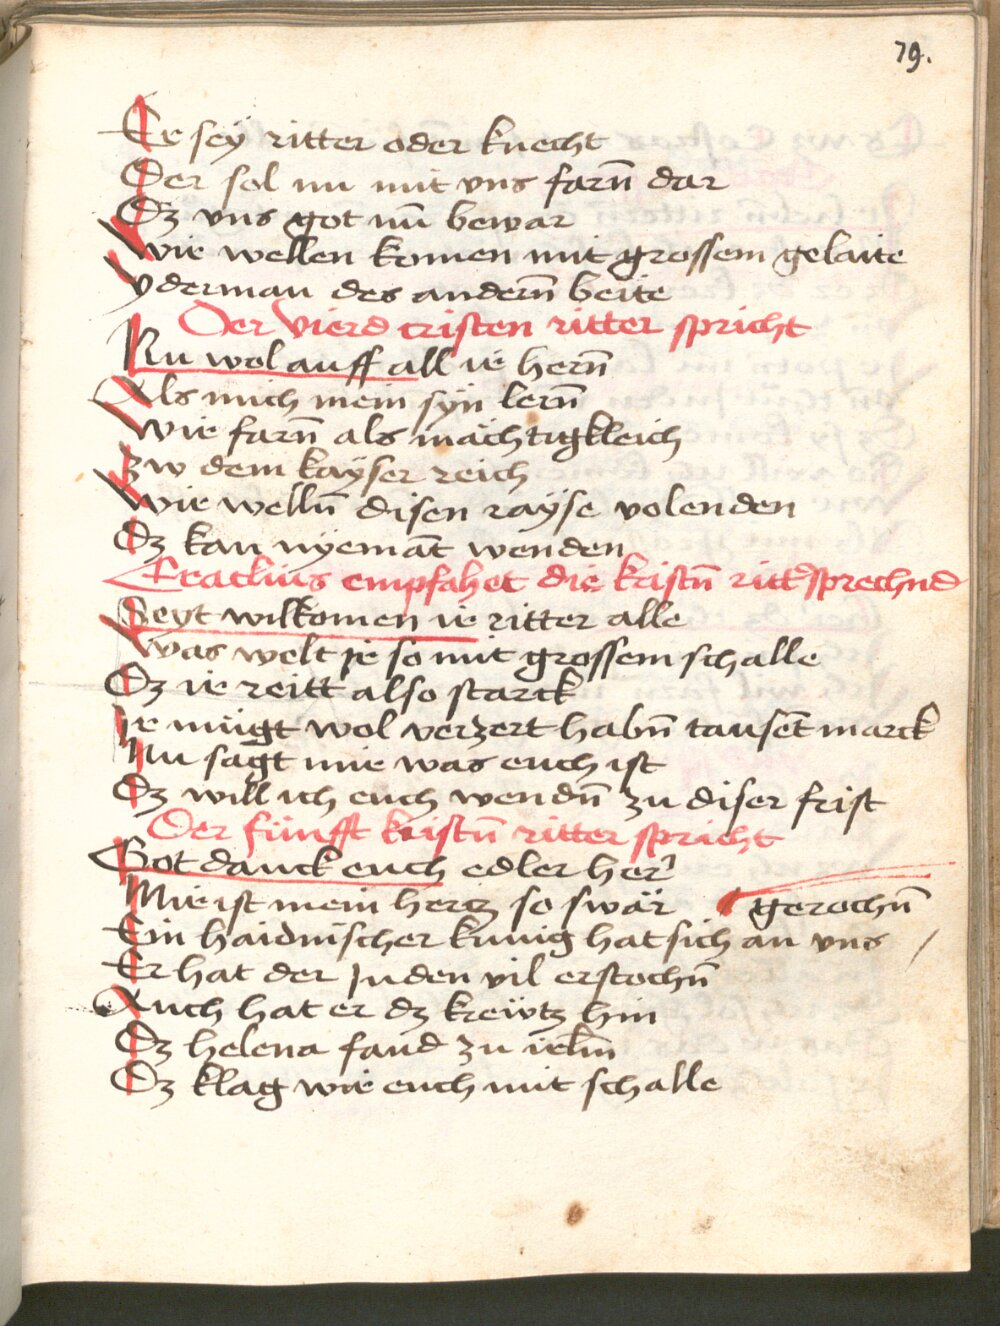 79.
Er seÿ ritter oder knecht
Der sol nu mit vns farn̄ dar
Dz vns got nū bewar
Wir wellen komen mit grossem gelaite
yderman des andern̄ beite
Der Vierd cristen ritter spricht
Nu wol auff all ir hern̄
Als mich mein sÿn lern̄
Wir farn̄ als mächtigkleich
Zw dem kaÿser reich
Wir welln̄ disen raÿse volenden
Dz kan nyemāt wenden
Eraclius empfahet die kristn̄ ritt sprechnd
Seyt wilkomen ir ritter alle
Was welt ir so mit grossem schalle
Dz ir reitt also starck
Ir mügt wol verzert habn̄ tausēt marck
Nu sagt mir was euch ist
Dz will ich euch wendn̄ zu diser frist
Der fünfft kristn̄ ritter spricht
Got danck euch edler her
Mir ist mein hertz so swär gerochn̄
Ein haidnischer kunig hat sich an vns /
Er hat der Juden vil erstochn̄
Auch hat er dz kreẅtz hin
Dz helena fand zu irlm̄
Dz klag wir euch mit schalle